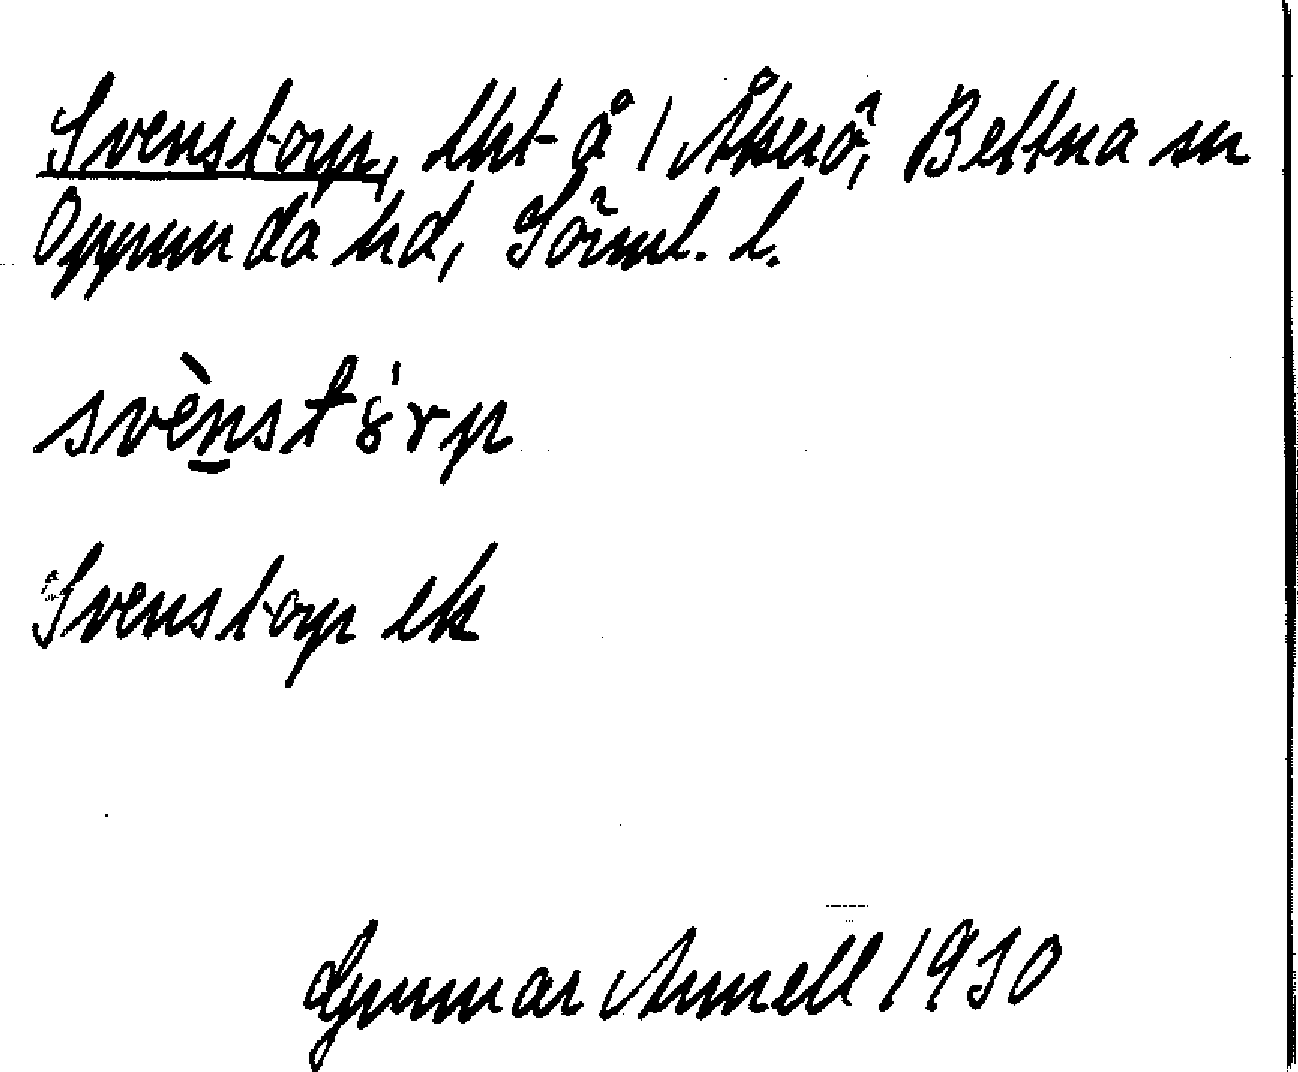 Svenstorp, lht å 1 Åkerö, Bettna sn
Oppunda hd, Sörml. l.
svènstȣ́rp
Svenstorp ek
Gunnar Arnell 1930